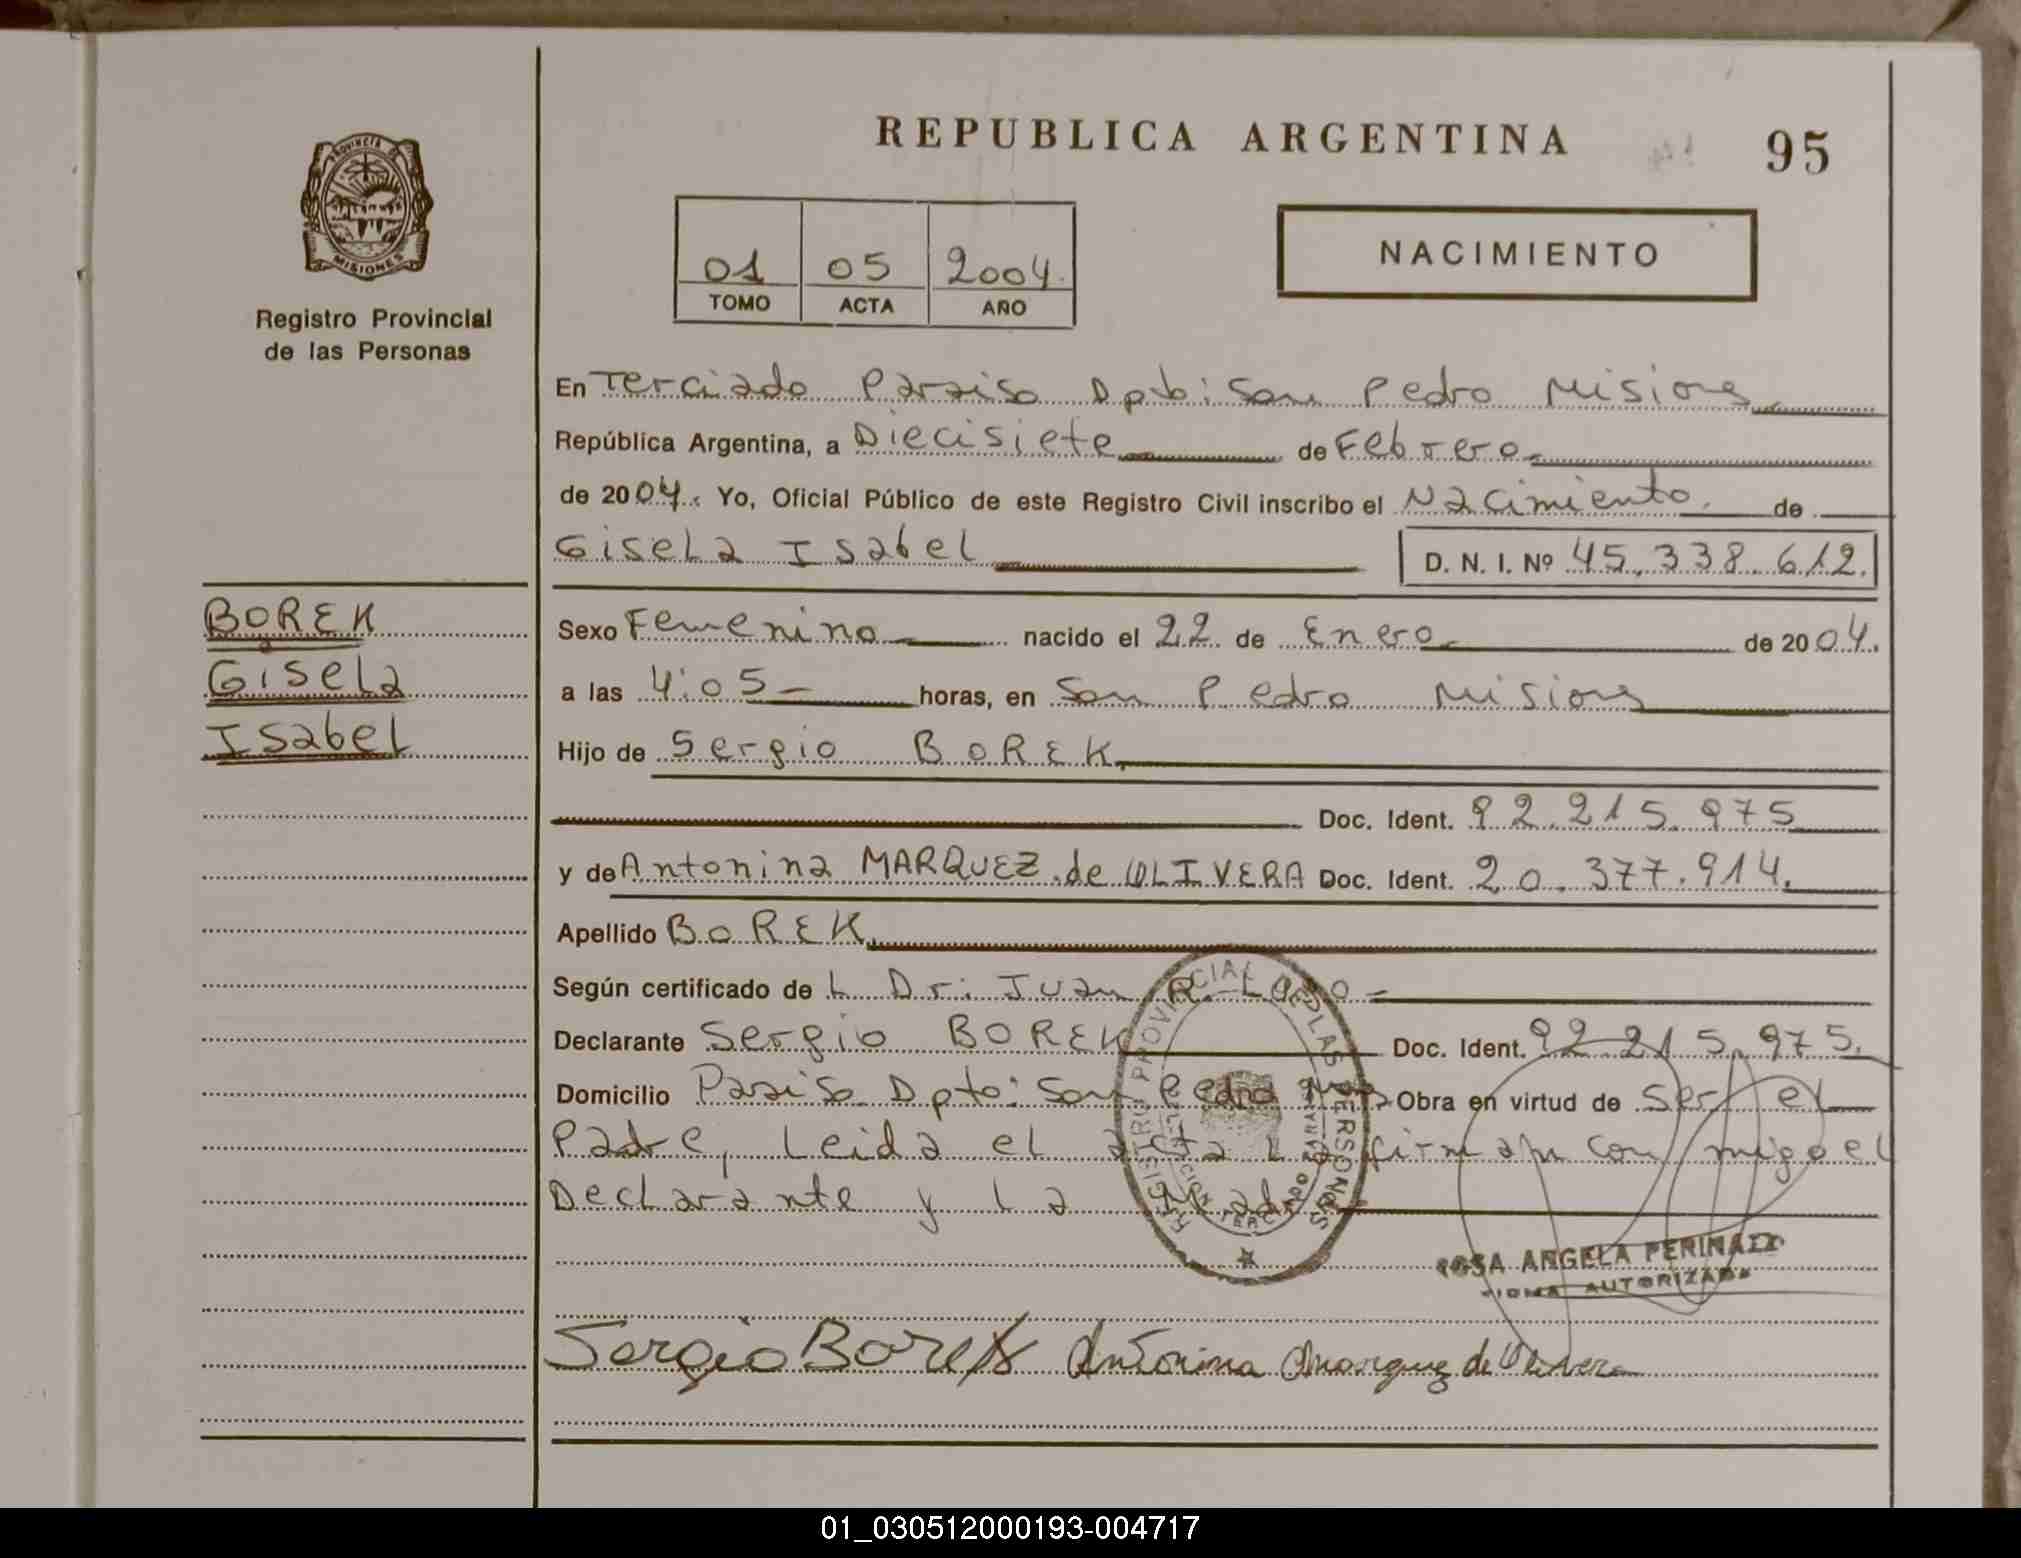 REPUBLICA ARGENTINA
95
PROVINCIA DE
MISIONES
Registro Provincial
de las Personas
01 05 2004.
TOMO ACTA AÑO
NACIMIENTO
En Terciado Paraiso Dpto: San Pedro Misiones
República Argentina, a Diecisiete de Febrero
de 2004. Yo, Oficial Público de este Registro Civil inscribo el Nacimiento. de
Gisela Isabel D. N. I. Nº 45.338.612.
BOREK
Gisela
Isabel
Sexo Femenino nacido el 22 de Enero de 2004.
a las 4:05 horas, en San Pedro Misiones
Hijo de Sergio BOREK
Doc. Ident. 92.215.975
y de Antonina MARQUEZ de OLIVERA Doc. Ident. 20.377.914.
Apellido BOREK
Según certificado de L Dr: Juan R.
Declarante Sergio BOREK Doc. Ident. 92 215 975.
Domicilio Paraiso Dpto: San Pedro Obra en virtud de ser el
Padre, Leida el acta La firman con migo el
Declarante y La Madre
REGISTRO PROVINCIAL DE LAS PERSONAS
TERCIADO PARAISO
ROSA ANGELA
FIRMA AUTORIZADA
Sergio Borek Antonina Marquez de Olivera
01_030512000193-004717